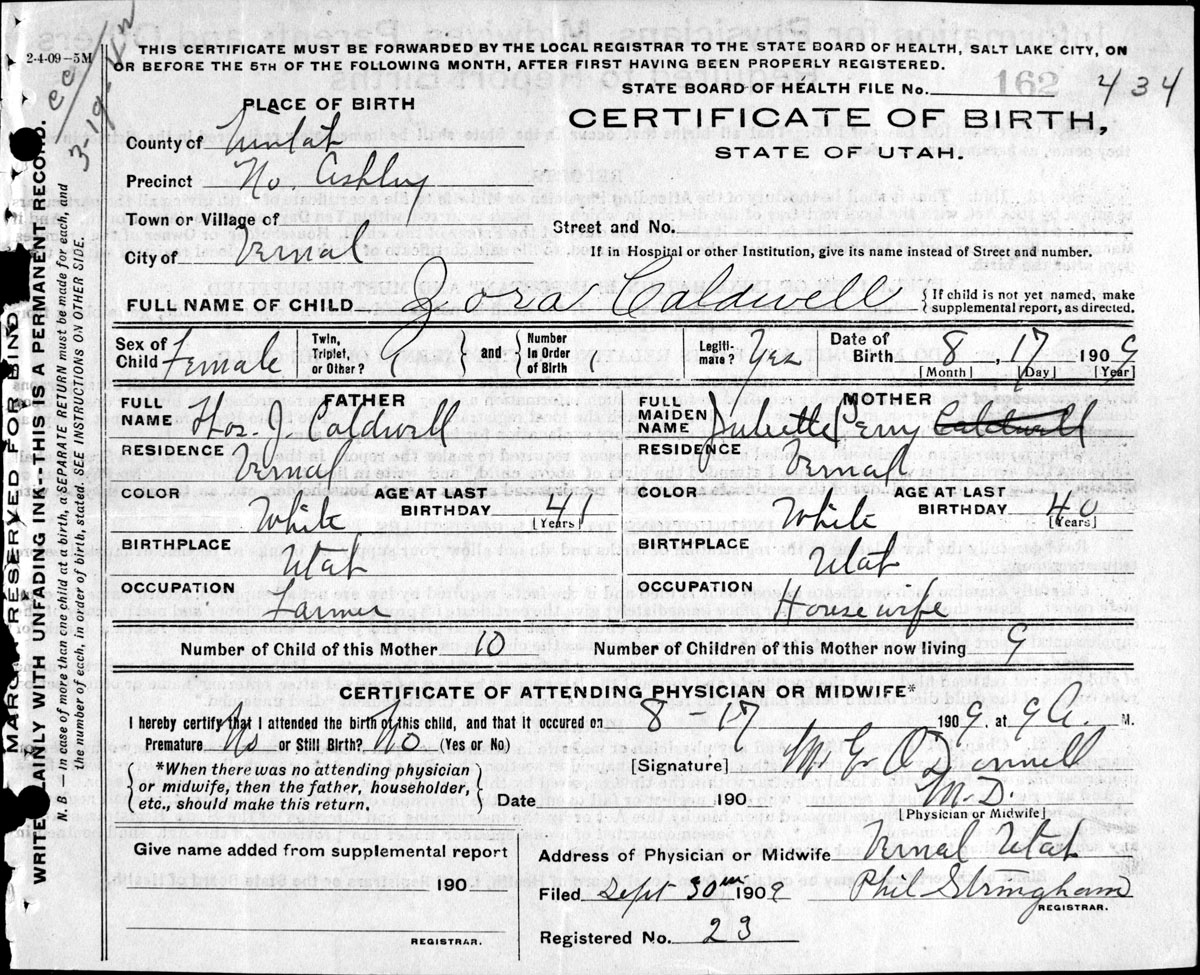 2-4-09-5M
THIS CERTIFICATE MUST BE FORWARDED BY THE LOCAL REGISTRAR TO THE STATE BOARD OF HEALTH, SALT LAKE CITY, ON
OR BEFORE THE 5TH OF THE FOLLOWING MONTH, AFTER FIRST HAVING BEEN PROPERLY REGISTERED.
STATE BOARD OF HEALTH FILE No. 162 434
PLACE OF BIRTH
CERTIFICATE OF BIRTH,
STATE OF UTAH.
County of Uintah
Precinct No. Ashley
Town or Village of
Street and No.
City of Vernal
If in Hospital or other Institution, give its name instead of Street and number.
FULL NAME OF CHILD Zora Caldwell
If child is not yet named, make
supplemental report, as directed.
Sex of Child Female
Twin, Triplet, or Other?
and
Number In Order of Birth
Legiti-mate? Yes
Date of Birth 8 17 1909
[Month] [Day] [Year]
FATHER
FULL NAME Thos. J. Caldwell
RESIDENCE Vernal
COLOR White
AGE AT LAST BIRTHDAY 41
[Years]
BIRTHPLACE Utah
OCCUPATION Farmer
MOTHER
FULL MAIDEN NAME Juliette Perry Caldwell
RESIDENCE Vernal
COLOR White
AGE AT LAST BIRTHDAY 40
[Years]
BIRTHPLACE Utah
OCCUPATION Housewife
Number of Child of this Mother 10
Number of Children of this Mother now living 9
CERTIFICATE OF ATTENDING PHYSICIAN OR MIDWIFE*
I hereby certify that I attended the birth of this child, and that it occured on 8-17 1909. at 9 A. M.
Premature No or Still Birth? No (Yes or No)
*When there was no attending physician
or midwife, then the father, householder,
etc., should make this return.
[Signature]
M.D.
Date 190
[Physician or Midwife]
Give name added from supplemental report
190
REGISTRAR.
Address of Physician or Midwife Vernal Utah
Filed Sept 30th 1909 Phil Stringham
REGISTRAR.
Registered No. 23
MARGIN RESERVED FOR BIND
WRITE PLAINLY WITH UNFADING INK--THIS IS A PERMANENT RECORD.
N. B.—In case of more than one child at a birth, a SEPARATE RETURN must be made for each, and
the number of each, in order of birth, stated. SEE INSTRUCTIONS ON OTHER SIDE.